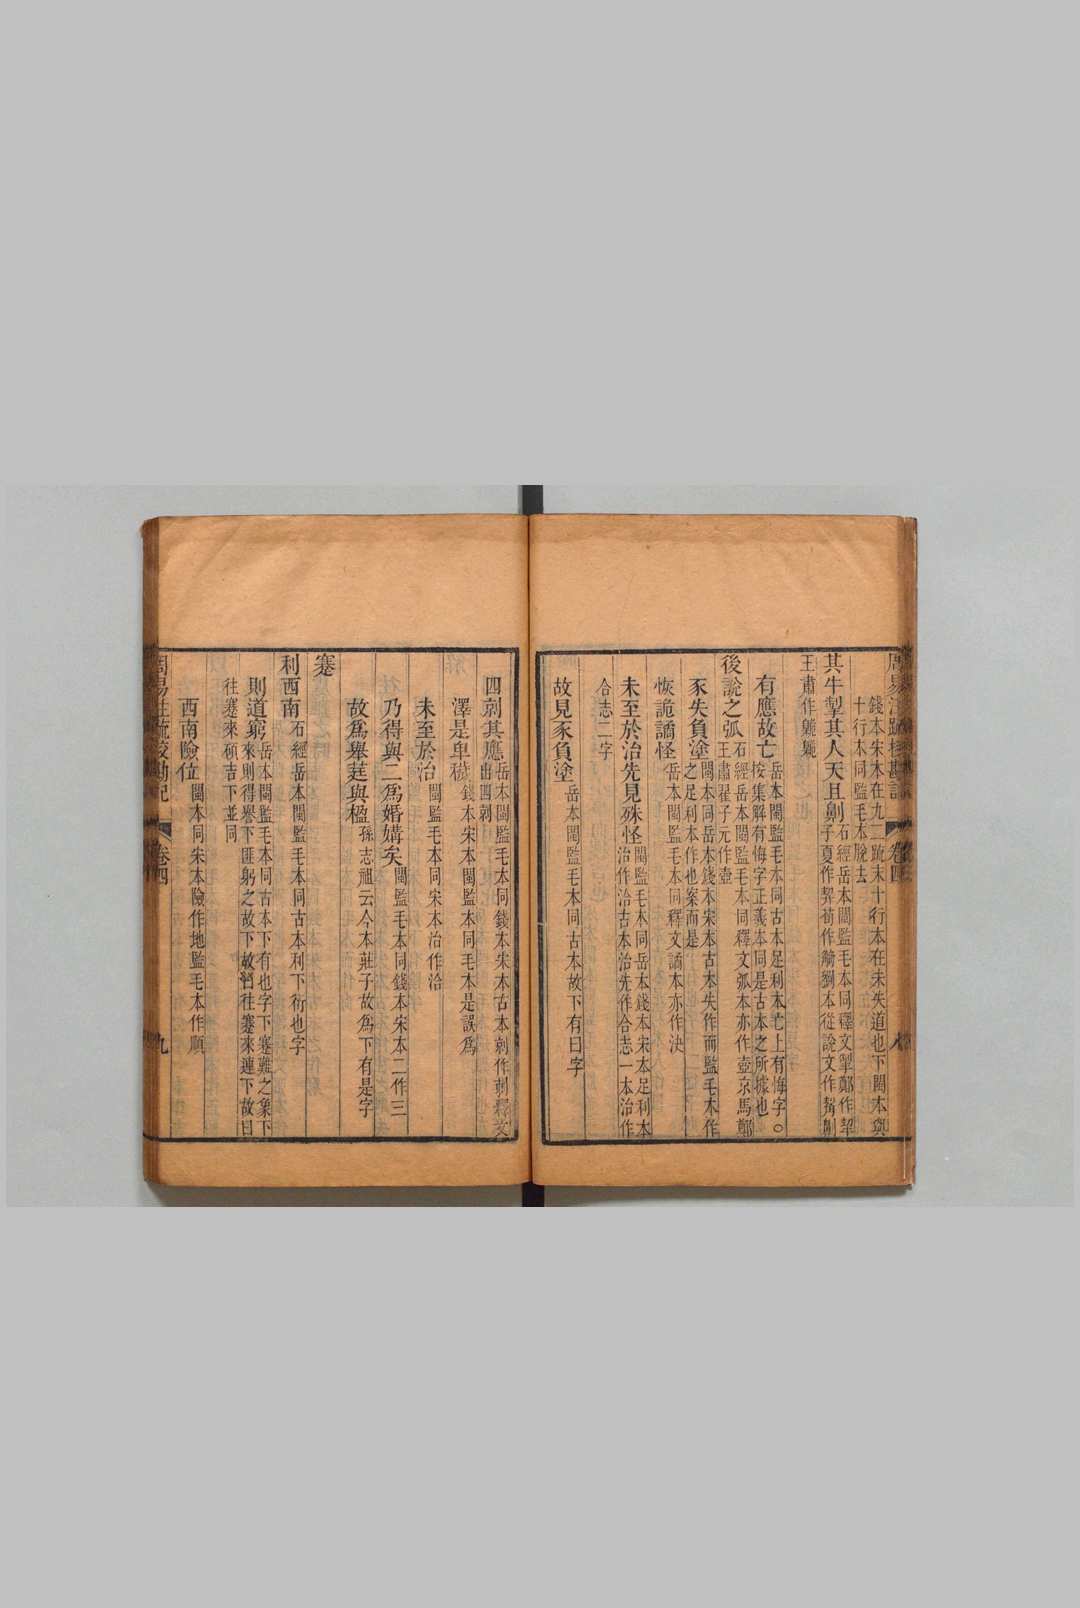 周易注疏校勘記 卷四 八
錢本宋本在九二疏末十行本在未失道也下閩本與
十行本同監毛本脫去
其牛掣其人天且劓
石經岳本閩監毛本同釋文掣鄭作挈
子夏作契荀作觭劉本從說文作觢劓
王肅作臲
有應故亡
岳本閩監毛本同古本足利本亡上有悔字○
按集解有悔字正義本同是古本之所據也
後說之弧
石經岳本閩監毛本同釋文弧本亦作壺京馬鄭
王肅翟子元作壺
豕失負塗
閩本同岳本錢本宋本古本失作而監毛本作
之足利本作也案而是
恢詭譎怪
岳本閩監毛本同釋文譎本亦作決
未至於治先見殊怪
閩監毛本同岳本錢本宋本足利本
治作洽古本治先作合志一本治作
合志二字
故見豕負塗
岳本閩監毛本同古本故下有曰字
四剠其應
岳本閩監毛本同錢本宋本古本剠作刺釋文
出四剠
澤是卑穢
錢本宋本閩監本同毛本是誤爲
未至於治
閩監毛本同宋本治作洽
乃得與二爲婚媾矣
閩監毛本同錢本宋本二作三
故爲舉莛與楹
孫志祖云今本莊子故爲下有是字
蹇
利西南
石經岳本閩監毛本同古本利下衍也字
則道窮
岳本閩監毛本同古本下有也字下蹇難之象下
來則得譽下匪躬之故下故曰往蹇來連下故曰
往蹇來碩吉下並同
西南險位
閩本同宋本險作地監毛本作順
周易注疏校勘記 卷四 九